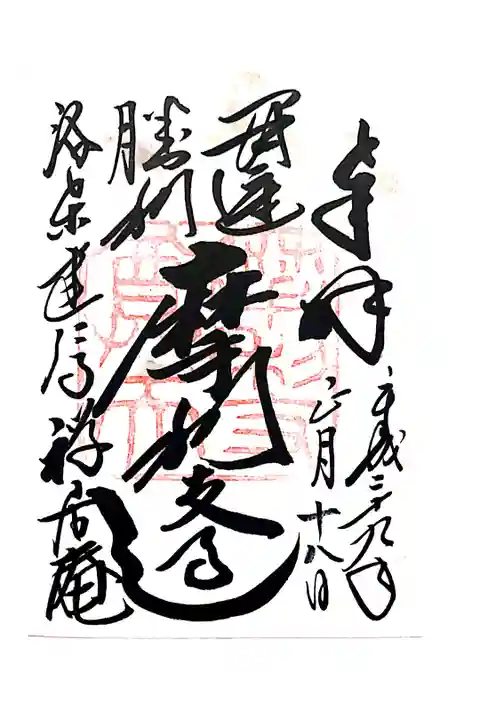 奉拝
平成二十九年
正月十八日
開運
勝利
摩利支
洛東建仁禅居庵